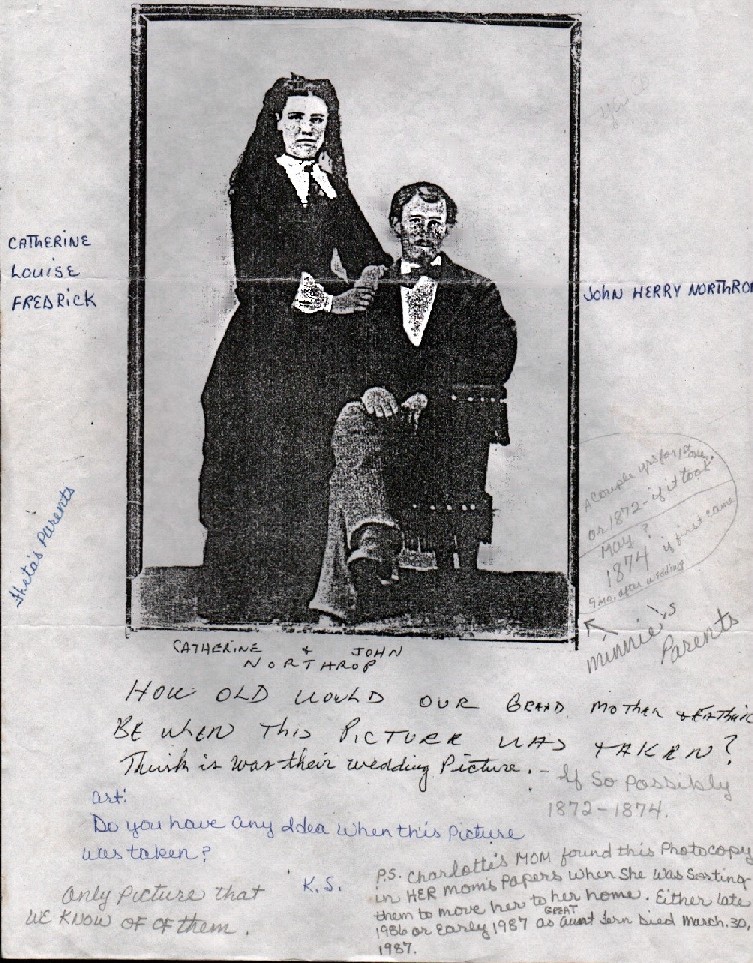 CATHERINE
LOUISE
FREDRICK
JOHN HERRY NORTHRO
theta's Parents
A couple yrs for
or 1872 - if it took
MAY ?
1874 if first came
9 mo. after wedding
Minnie's
Parents
CATHERINE & JOHN
NORTHROP
HOW OLD WOULD OUR GRAND MOTHER & FATHER
BE WHEN THIS PICTURE WAS TAKEN?
Think is was their wedding Picture. - If So Possibly
1872-1874.
art:
Do you have any Idea when this Picture
was taken?
K.S.
only Picture that
WE KNOW OF OF them.
P.S. Charlotte's MOM found this Photocopy
in HER mom's Papers when She was Sorting
them to move her to her home. Either late
1986 or Early 1987 as GREAT Aunt Fern Died March. 30,
1987.